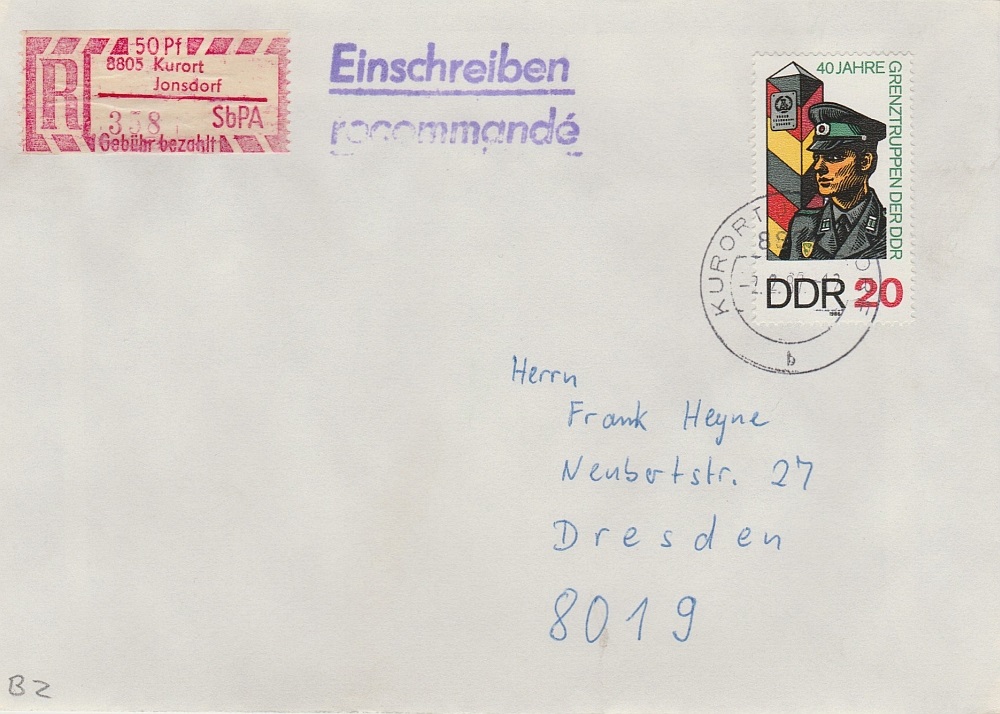 50 Pf
8805 Kurort
Jonsdorf
R
358
SbPA
Gebühr bezahlt
Einschreiben
recommandé
40 JAHRE
GRENZTRUPPEN DER DDR
DDR 20
1986
KURORT
b
Herrn
Frank Heyne
Neubertstr. 27
Dresden
8019
BZ